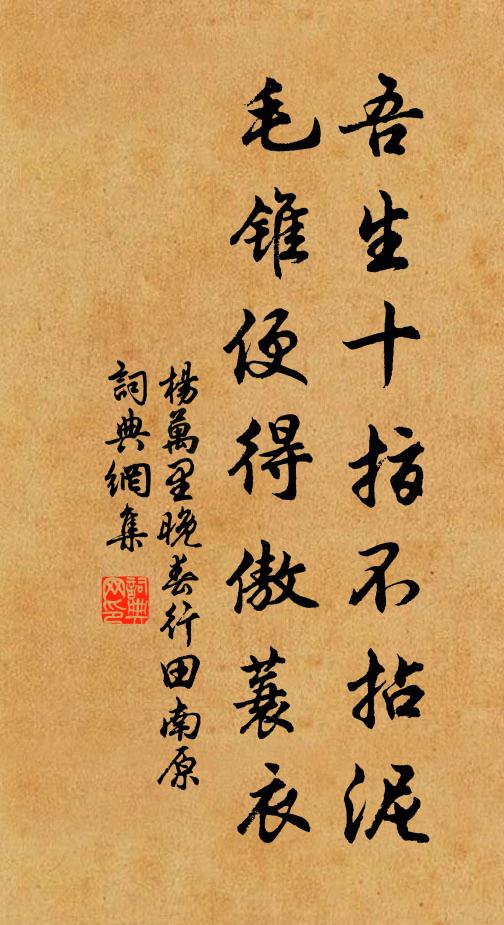 吾生十指不拈泥
毛錐便得傲蓑衣
楊萬里晚春行田南原
詞典網集
詞典網印